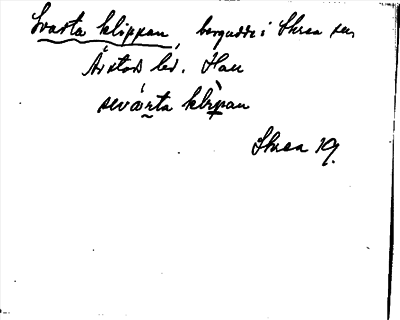 Svarta klippan, bergudde i Skrea sn,
Årstad hd. Hall
svárta klìpan
Skrea 19.